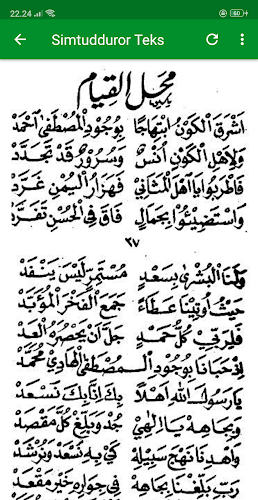 22.24
60
Simtudduror Teks
محل القيام
اشرق الكون ابتهاجا بوجود المصطفى احمد
ولاهل الكون انس وسرور قد تجدد
فاطربوا يا اهل المثاني فهزار اليمن غرد
واستضيئوا بجمال فاق في الحسن تفرد
٣٧
ولنا البشرى بسعد مستمر ليس ينفد
حيث اوتينا عطاء جمع الفخر المؤبد
فلربي كل حمد جل ان يحصره العد
اذ حبانا بوجود المصطفى الهادي محمد
يا رسول الله اهلا بك انا بك نسعد
وبجاهه يا الهي جد وبلغ كل مقصد
واهدنا نهج سبيله كي به نسعد ونرشد
رب بلغنا بجاهه في جواره خير مقعد